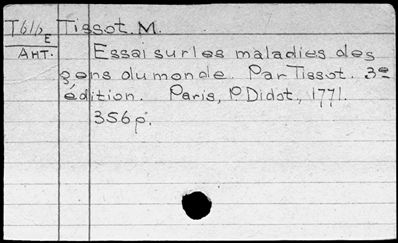 T616E Tissot. M.
AHT. Essai sur les maladies des
gens du monde. Par Tissot. 3e
édition. Paris, P. Didot, 1771.
356p.